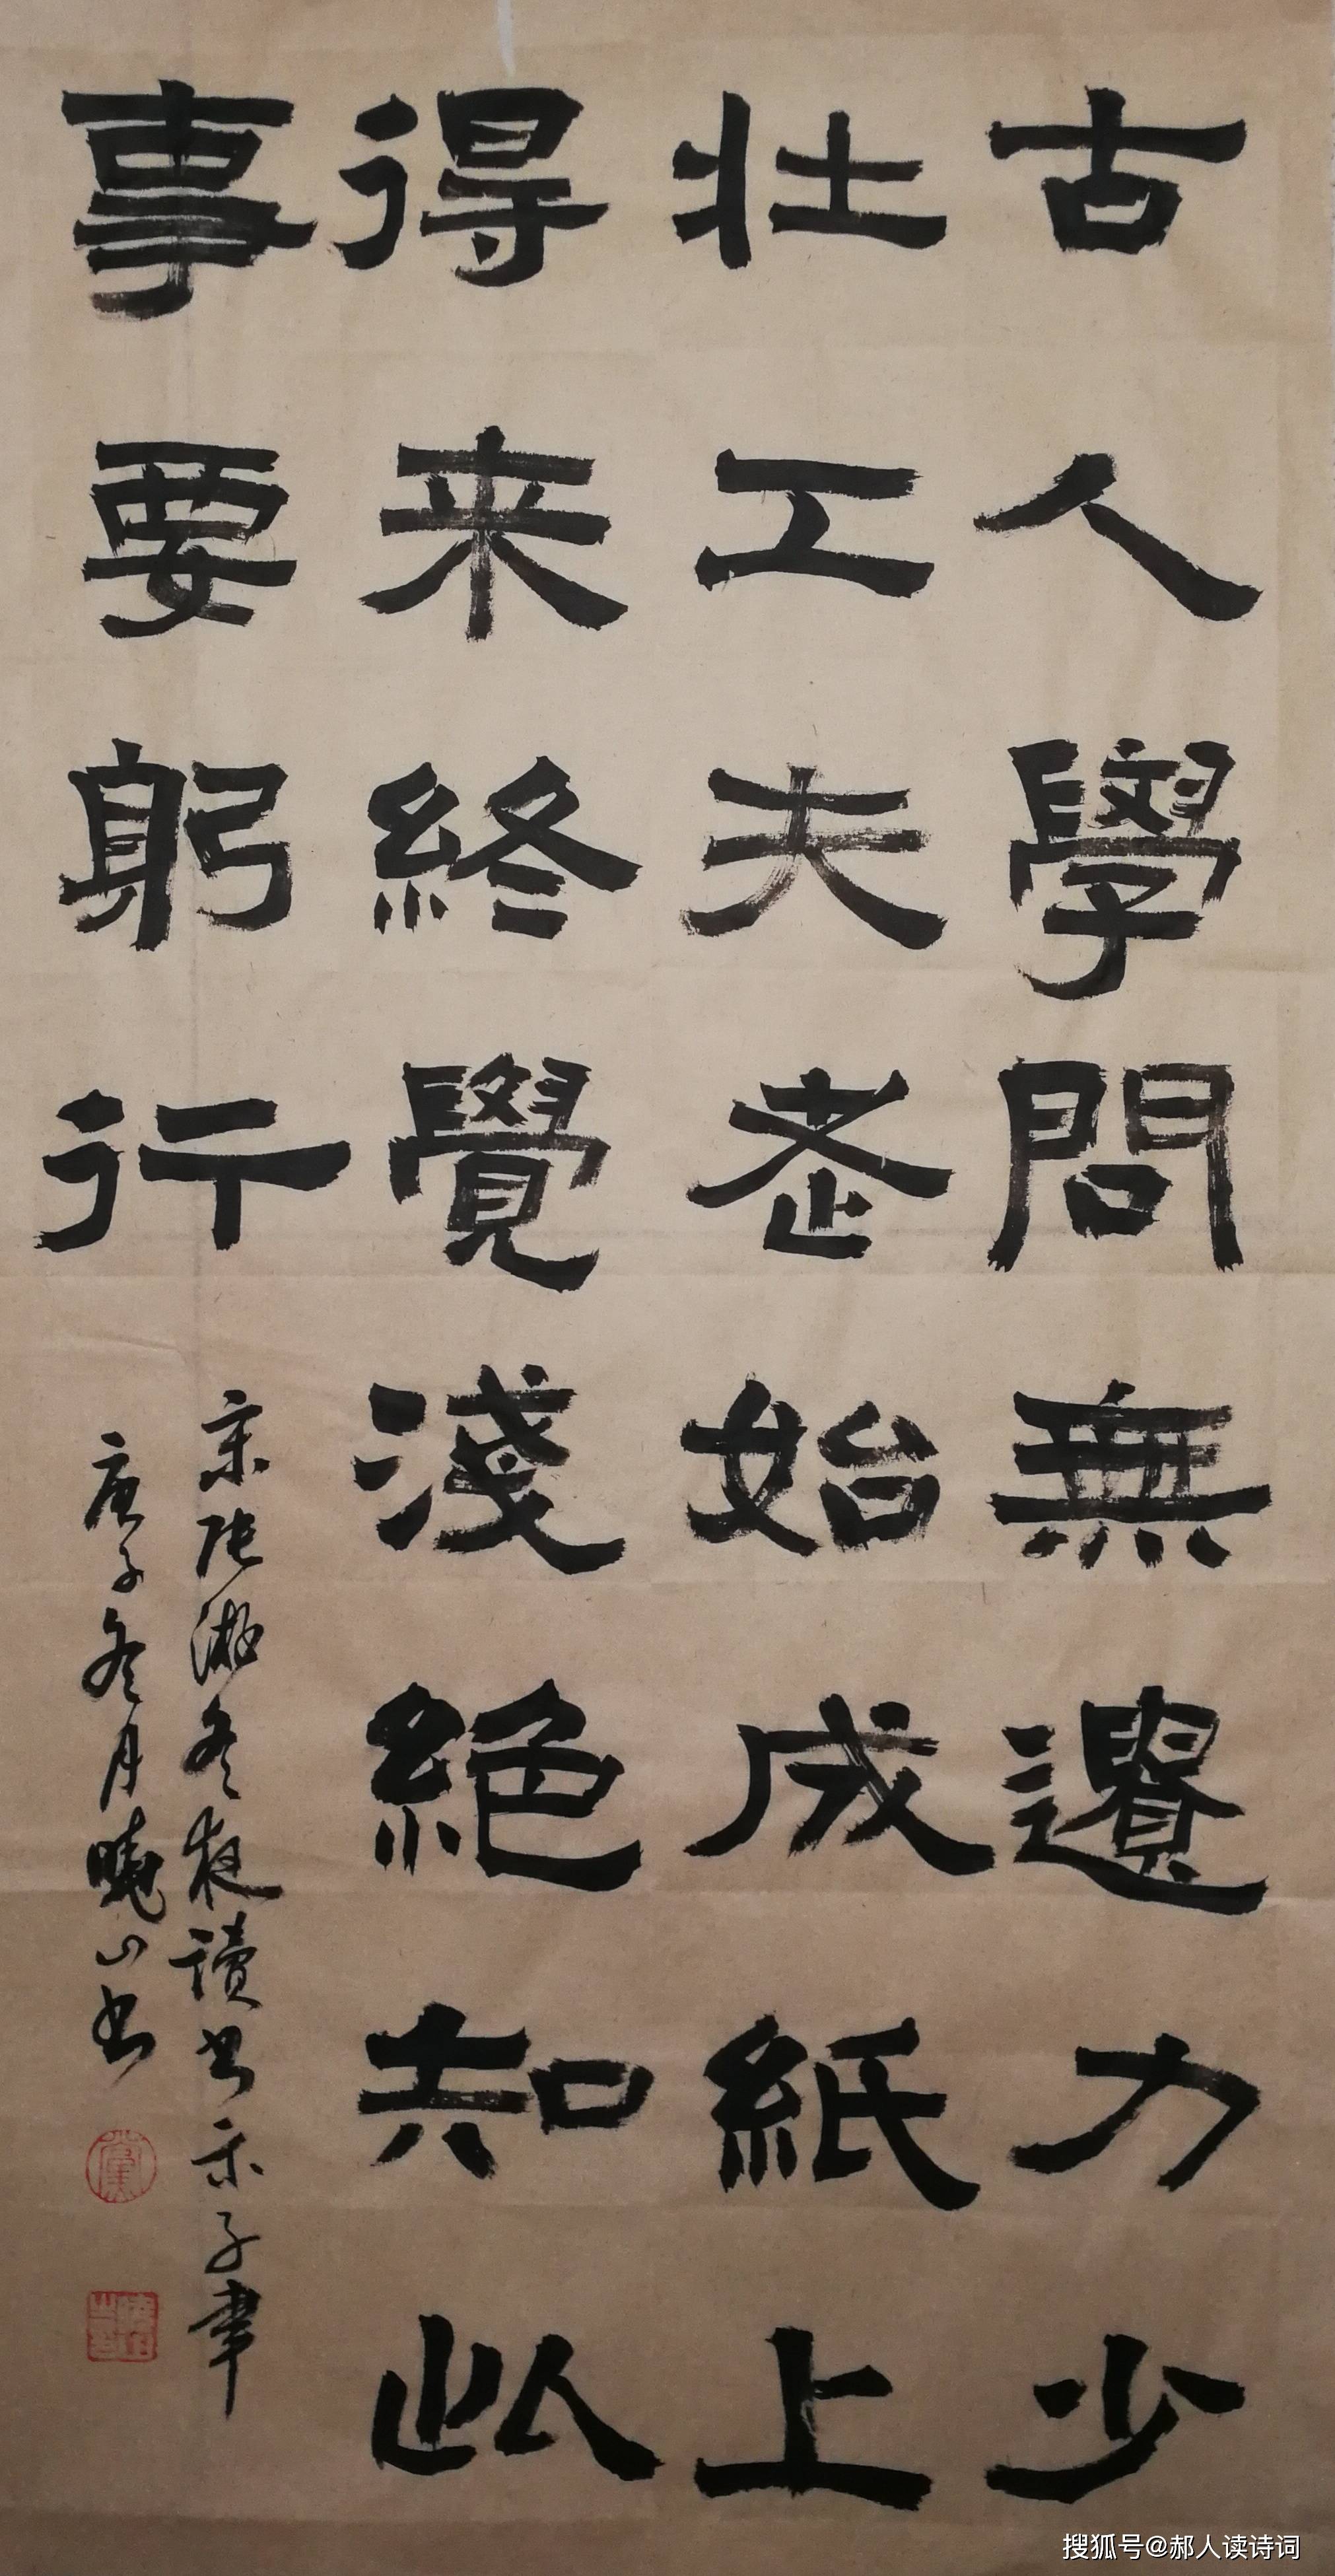 古人學問無遺力少
壮工夫老始成紙上
得来終覺淺絕知此
事要躬行
宋陸游冬夜讀书示子聿
庚子冬月曉山书
搜狐号@郝人读诗词